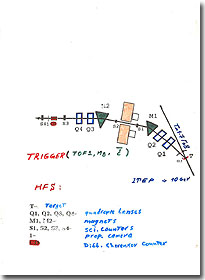 M2
M1
Q4 Q3
Q2
Q1
T
TRIGGER (TOF1, MB, Σ)
ITEP → 10 GeV
HFS:
T- Target
Q1, Q2, Q3, Q4- quadrupole lenses
M1, M2- magnets
S1, S2, S3, S4- sci. counters
prop. camera
Diff. Cherenkov counter